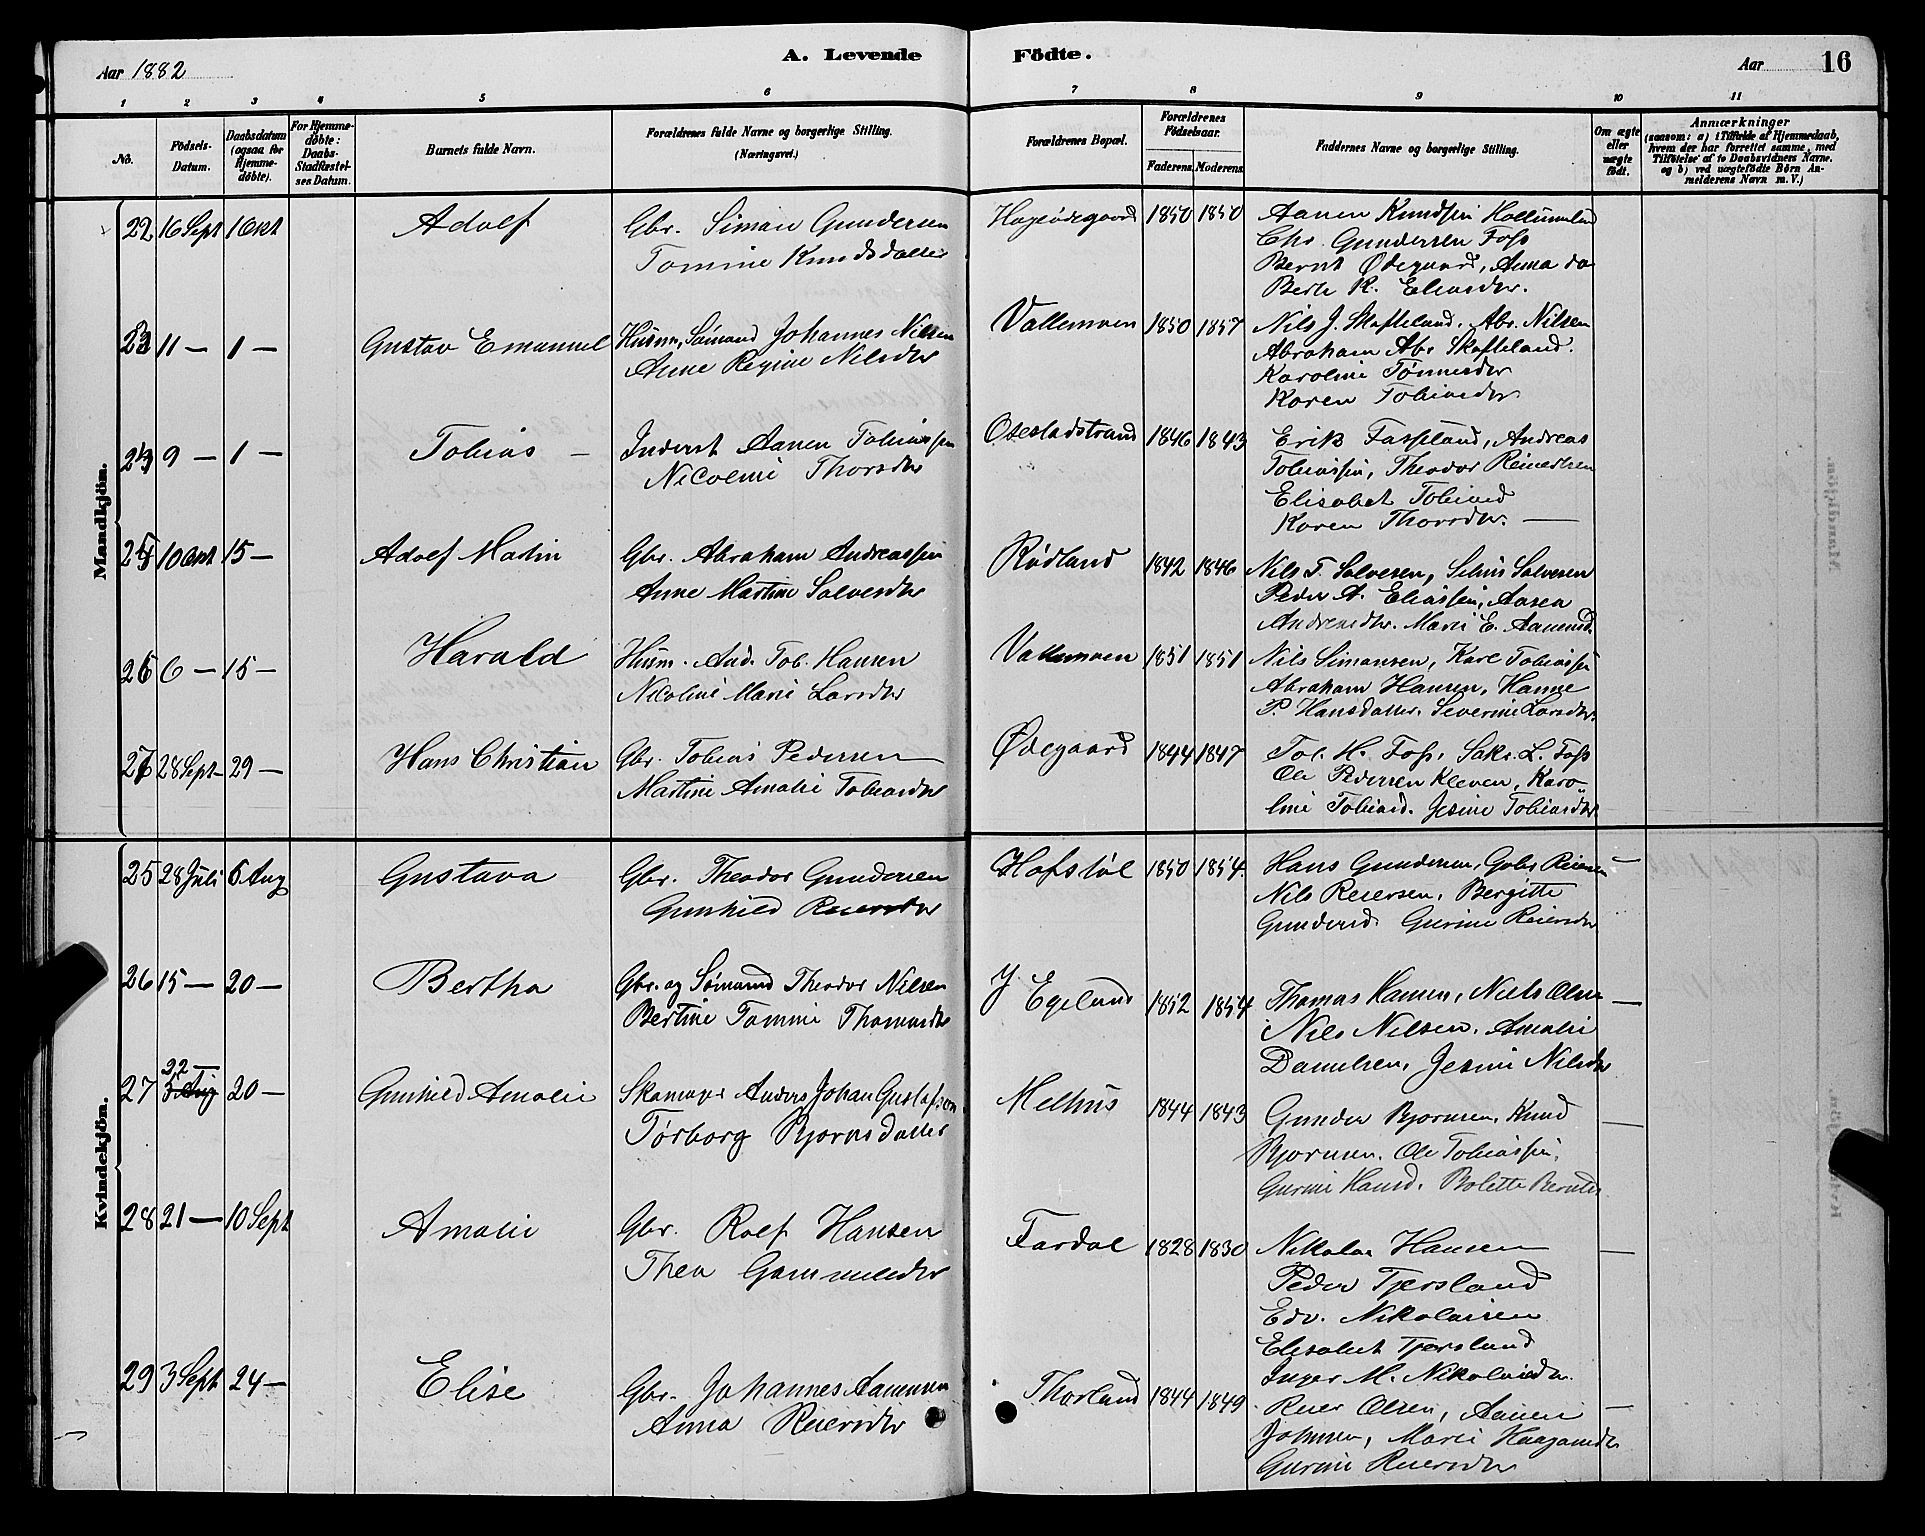 Aar 1882
A. Levende
Födte.
Aar
16
1 2 3 4 5 6 7 8 9 10 11
No.
Födsels-
Datum.
Daabsdatum
(ogsaa for
Hjemme-
döbte).
For Hjemme-
döbte:
Daabs-
Stadfæstel-
ses Datum.
Barnets fulde Navn.
Forældrenes fulde Navne og borgerlige Stilling.
(Næringsvei.)
Forældrenes Bopæl.
Forældrenes
Födselsaar.
Faderens. Moderens.
Faddernes Navne og borgerlige Stilling.
Om ægte
eller
uægte
født.
Anmærkninger
(saasom: a) i Tilfælde af Hjemmedaab,
hvem der har forrettet samme, med
Tilföielse af to Daabsvidners Navne,
og b) ved uægtefödte Börn An-
melderens Navn m. V.)
Mandkjön.
22 16 Sept 1 Okt Adolf Gbr. Simon Gundersen
Tomine Knudsdatter
Hageødegaard 1850 1850
Aanen Knudsen
Chr. Gundersen Foss
Bernt Ødegaard, Anna do
Berte K. Eliasdtr.
23 11 — 1 — Gustav Emanuel Husm, Sømand Johannes Nilsen
Anne Regine Nilsdtr
Vallemoen 1850 1857
Nils J. Skofteland. Abr. Nilsen
Abraham Abr Skofteland.
Karoline Tønnesdtr
Karen Tobiasdtr
24 9 — 1 — Tobias — Inderst Aanen Tobiassen
Nicoline Thorsdtr
Osestadstrand 1846 1843
Erik Fasseland, Andreas
Tobiassen, Theodor Reinertsen
Elisabet Tobiasd
Karen Thorsdtr. —
25 10 Okt 15 — Adolf Martin Gbr. Abraham Andreassen
Anne Martine Salvesdtr
Rødland 1842 1846
Nils T. Salvesen, Selius Salvesen
Peder A. Eliassen, Aasea
Andreasdtr. Marie E. Aanensd.
26 6 — 15 — Harald Husm. And. Tob. Hansen
Nicoline Marie Larsdtr
Vallemoen 1851 1851
Nils Simonsen, Karl Tobiassen
Abraham Hansen, Hanne
P. Hansdatter. Severine Larsdtr.
27 28 Sept 29 — Hans Christian Gbr. Tobias Pedersen
Martine Amalie Tobiasdtr
Ødegaard 1844 1847
Tob. H. Foss, Sakr. L. Foss
Ole Pedersen Kleven, Karo-
line Tobiasd. Jesine Tobiasdtr
Kvindekjön.
25 28 Juli 6 Aug Gustava Gbr. Theodor Gundersen
Gunhild Reiersdtr
Hafstøl 1850 1854
Hans Gundersen, Gabr Reiersen —
Nils Reiersen, Bergitte
Gundersd. Gurine Reiersdtr
26 15 — 20 — Bertha Gbr. og Sømand Theodor Nilsen
Bertine Tomine Thomasdtr
Y Egeland 1852 1854
Thomas Hansen, Niels Olsen —
Nils Nilsen, Amalie
Danielsen, Jesine Nilsdtr
27 22 — 5 Aug 20 — Gunhild Amalie Skomager Anders Johan Gustafsen
Tørborg Bjornsdatter
Melhus 1844 1843
Gunder Bjornsen, Knud —
Bjornsen. Ole Tobiassen,
Gurine Hansd. Bolette Berntsd
28 21 — 10 Sept Amalie Gbr. Rolf Hansen
Thea Gammelsdtr
Fardal 1828 1830
Nikolai Hansen —
Peder Tjersland
Edv. Nikolaisen
Elisabet Tjersland
Inger M. Nikolaisdtr.
29 3 Sept 24 — Elise Gbr. Johannes Aanensen
Anna Reiersdtr
Thorland 1844 1849
Reier Olsen, Aanen —
Johnsen, Marie Haagansdtr
Gurine Reiersdtr